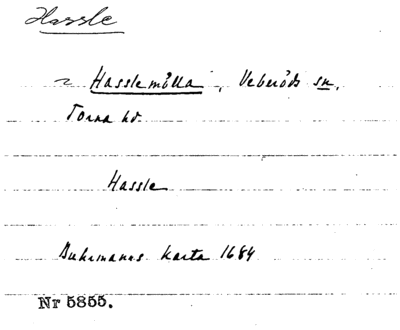 Hassle
~ Hasslemölla, Veberöds sn,
Torna hd
Hassle
Buhrmanns karta 1684
Nr 5855.